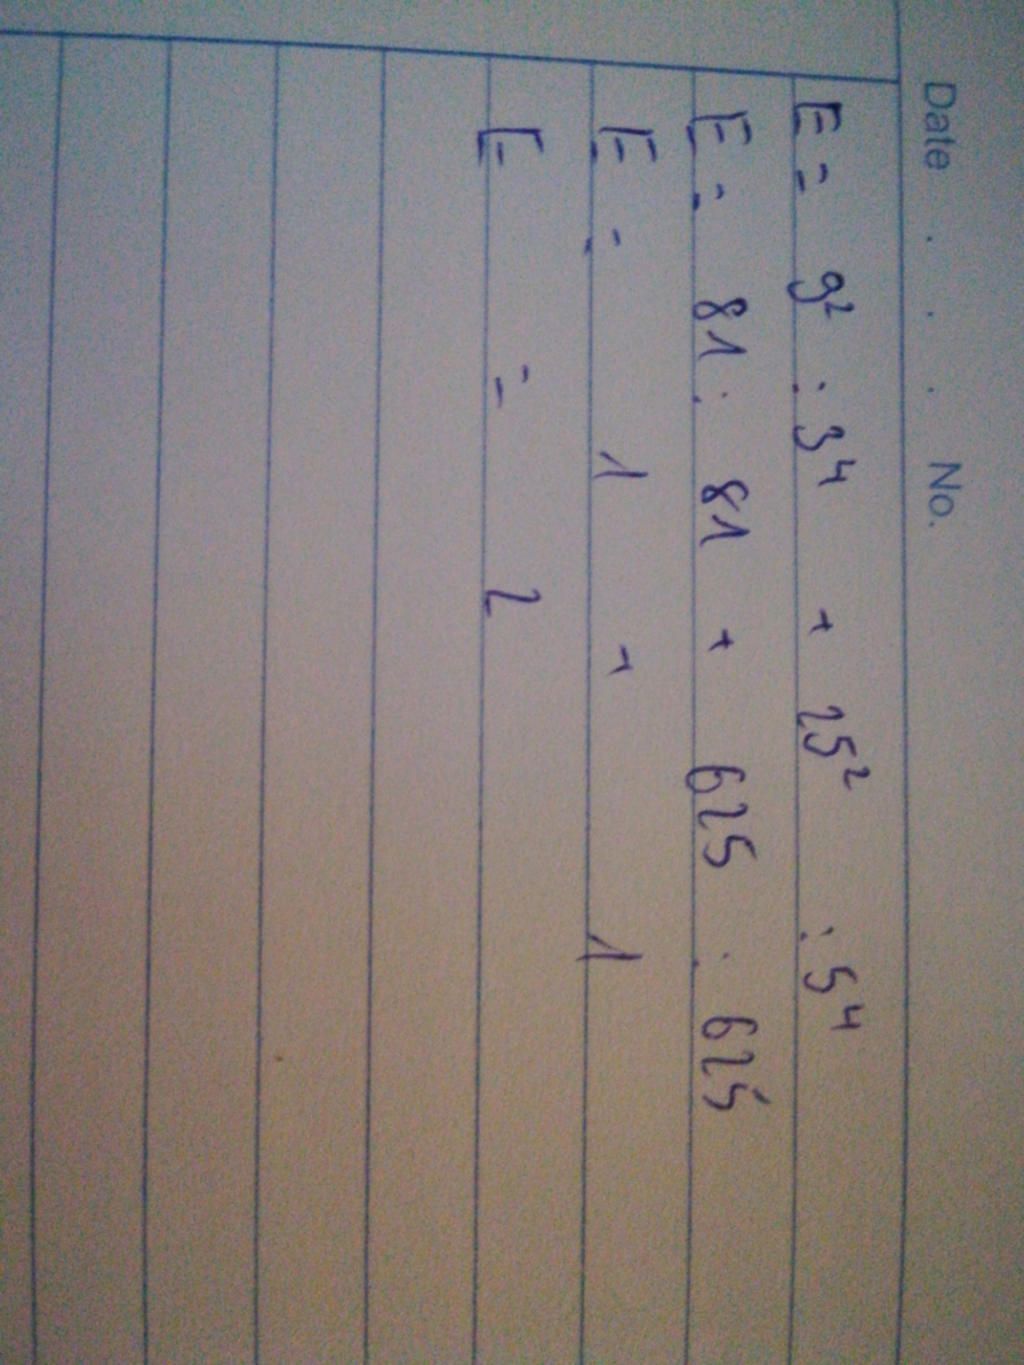 Date . . . No.
E = 9² : 3⁴ + 25² : 5⁴
E = 81 : 81 + 625 : 625
E = 1 + 1
E = 2